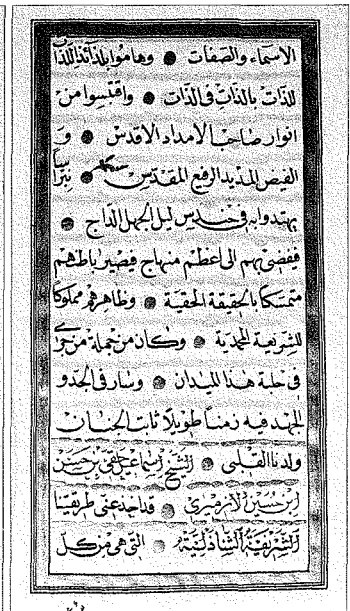 الاسماء والصفات ● وهاموا بلذائذ اللذات
للذات بالذات فى الذات ● واقتبسوا من
انوار صاحب الامداد الاقدس ● و
الفيض المديد الرفيع المقدس ● نبراسا
يهتدوا به فى حندس ليل الجهل الداج ●
فيفضى بهم الى اعظم منهاج فيصير باطنهم
متمسكا بالحقيقة الحقية ● وظاهرهم مملوكا
للشريعة المحمدية ● وكان من جملة من جرى
فى حلبة هذا الميدان ● وسار فى الجد و
الجهد فيه زمنا طويلا ثابت الجنان
ولدنا القلبى ● الشيخ اسماعيل حقى بن حسين
ابن حسين الازميرى ● قد اخذ عنى طريقتنا
الشريفة الشاذلية ● التى هى من كل